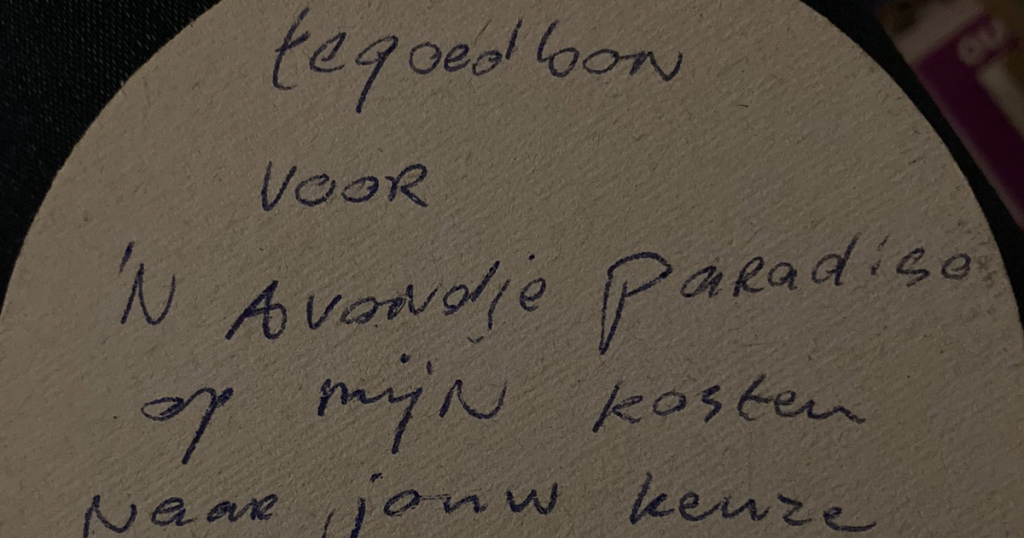 tegoedbon
voor
'N Avondje Paradiso
op mijn kosten
Naar jouw keuze